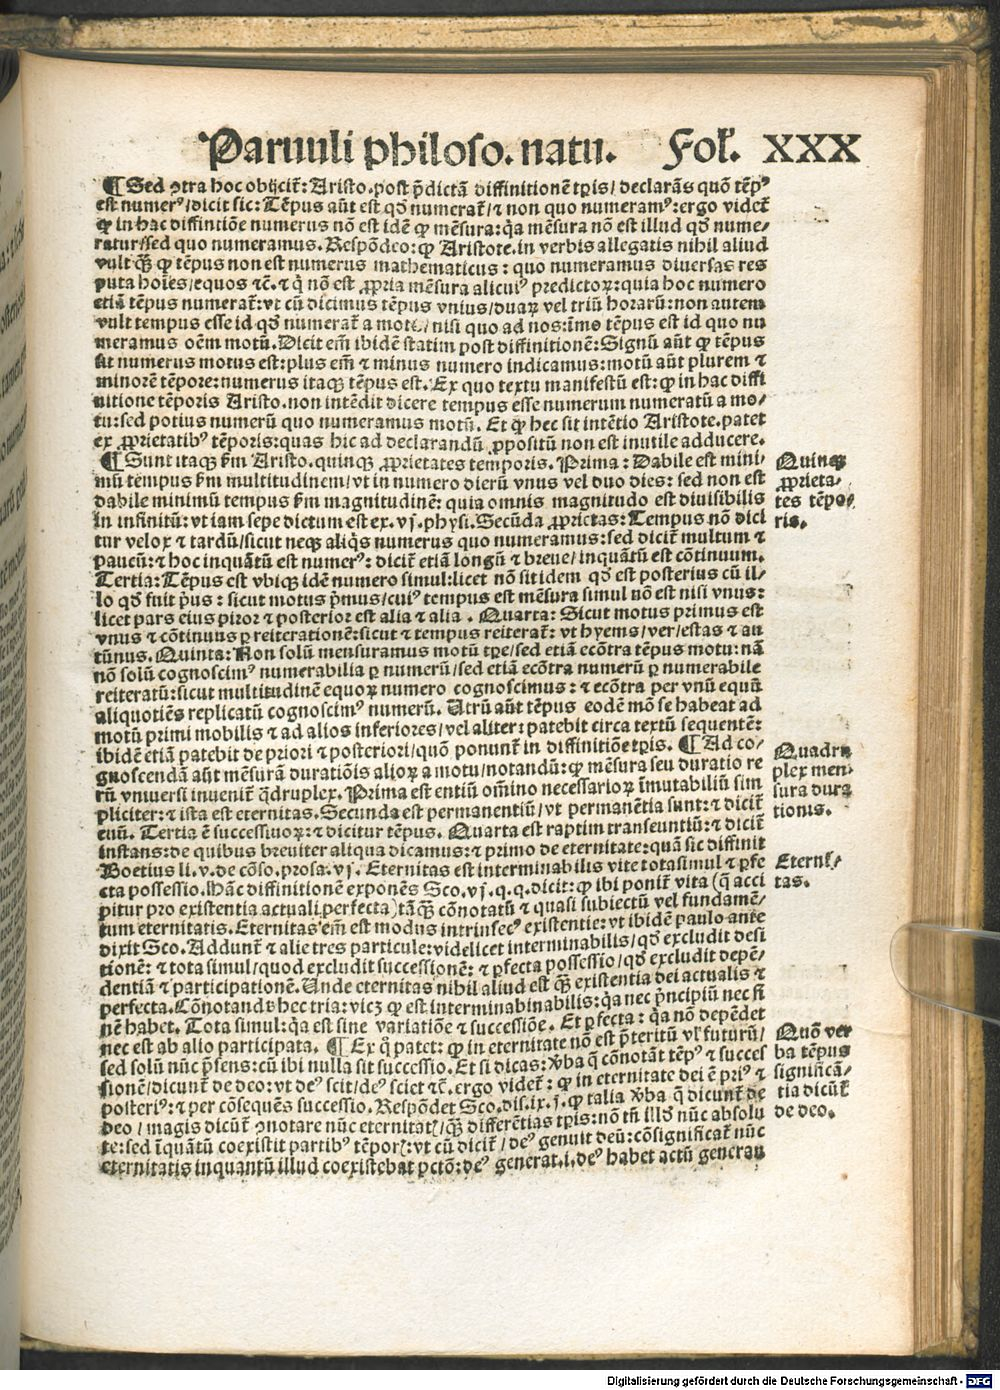 Paruuli philoso. natu. Fol. XXX
¶ Sed ꝯtra hoc obijcit̃: Aristo. post p̃dictã diffinitionẽ tp̃is/ declarãs quõ tẽpꝰ
est numerꝰ/ dicit sic: Tẽpus aũt est qd̃ numerat̃/ ⁊ non quo numeramꝰ: ergo videt̃
ꝙ in hac diffintiõe numerus nõ est idẽ ꝙ mẽsura: q̃a mẽsura nõ est illud qd̃ nume/
ratur/ sed quo numeramus. Respõdeo: ꝙ Aristote. in verbis allegatis nihil aliud
vult q̃ꝫ ꝙ tẽpus non est numerus mathematicus: quo numeramus diuersas res
puta hoĩes/ equos ⁊c̃. ⁊ q̃ nõ est ꝓpria mẽsura alicuiꝰ predictoꝝ: quia hoc numero
etiã tẽpus numerat̃: vt cũ dicimus tẽpus vnius/ duaꝝ vel triũ horarũ: non autem
vult tempus esse id qd̃ numerat̃ a motu/ nisi quo ad nos: ĩmo tẽpus est id quo nu
meramus oẽm motũ. Dicit em̃ ibidẽ statim post diffinitionẽ: Signũ aũt ꝙ tẽpus
sit numerus motus est: plus em̃ ⁊ minus numero indicamus: motũ aũt plurem ⁊
minorẽ tẽpore: numerus itaqꝫ tẽpus est. Ex quo textu manifestũ est: ꝙ in hac diffi
nitione tẽporis Aristo. non intẽdit dicere tempus esse numerum numeratũ a mo/
tu: sed potius numerũ quo numeramus motũ. Et ꝙ hec sit intẽtio Aristote. patet
ex ꝓprietatibꝰ tẽporis: quas hic ad declarandũ ꝓpositũ non est inutile adducere.
¶ Sunt itaqꝫ ẜm Aristo. quinqꝫ ꝓprietates temporis. Prima: Dabile est mini/
mũ tempus ẜm multitudinem/ vt in numero dierũ vnus vel duo dies: sed non est
dabile minimũ tempus ẜm magnitudinẽ: quia omnis magnitudo est diuisibilis
in infinitũ: vt iam sepe dictum est ex. vj. physi. Secũda ꝓprietas: Tempus nõ dici
tur velox ⁊ tardũ/ sicut neqꝫ aliq̃s numerus quo numeramus: sed dicit̃ multum ⁊
paucũ: ⁊ hoc inquãtũ est numerꝰ: dicit̃ etiã longũ ⁊ breue/ inquãtũ est cõtinuum.
Tertia: Tẽpus est vbiqꝫ idẽ numero simul: licet nõ sit idem qd̃ est posterius cũ il/
lo qd̃ fuit p̃us: sicut motus p̃mus/ cuiꝰ tempus est mẽsura simul nõ est nisi vnus:
licet pars eius piror ⁊ posterior est alia ⁊ alia. Quarta: Sicut motus primus est
vnus ⁊ cõtinuus ꝑ reiterationẽ: sicut ⁊ tempus reiterat̃: vt hyems/ ver/ estas ⁊ au
tũnus. Quinta: Non solũ mensuramus motũ tp̃e/ sed etiã ecõtra tẽpus motu: nã
nõ solũ cognoscimꝰ numerabilia ꝑ numerũ/ sed etiã ecõtra numerũ ꝑ numerabile
reiteratũ: sicut multitudinẽ equoꝝ numero cognoscimus: ⁊ ecõtra per vnũ equũ
aliquotiẽs replicatũ cognoscimꝰ numerũ. Utrũ aũt tẽpus eodẽ mõ se habeat ad
motũ primi mobilis ⁊ ad alios inferiores/ vel aliter: patebit circa textũ sequentẽ:
ibidẽ etiã patebit de priori ⁊ posteriori/ quõ ponunt̃ in diffinitiõe tp̃is. ¶ Ad co/
gnoscendã aũt mẽsurã duratiõis alioꝝ a motu/ notandũ: ꝙ mẽsura seu duratio re
rũ vniuersi inuenit̃ q̃druplex. Prima est entiũ om̃ino necessarioꝝ ĩmutabiliũ sim
pliciter: ⁊ ista est eternitas. Secunda est permanentiũ/ vt permanẽtia sunt: ⁊ dicit̃
euũ. Tertia ẽ successiuoꝝ: ⁊ dicitur tẽpus. Quarta est raptim transeuntiũ: ⁊ dicit̃
instans: de quibus breuiter aliqua dicamus: ⁊ primo de eternitate: quã sic diffinit
Boetius li. v. de cõso. prosa. vj. Eternitas est interminabilis vite tota simul ⁊ ꝑfe
cta possessio. Hãc diffinitionẽ exponẽs Sco. vj. q. q. dicit: ꝙ ibi ponit̃ vita (q̃ acci
pitur pro existentia actuali perfecta) tãq̃ꝫ cõnotatũ ⁊ quasi subiectũ vel fundamẽ/
tum eternitatis. Eternitas em̃ est modus intrinsecꝰ existentie: vt ibidẽ paulo ante
dixit Sco. Addunt̃ ⁊ alie tres particule: videlicet interminabilis/ qd̃ excludit desi
tionẽ: ⁊ tota simul/ quod excludit successionẽ: ⁊ ꝑfecta possessio/ qd̃ excludit depẽ/
dentiã ⁊ participationẽ. Unde eternitas nihil aliud est q̃ꝫ existentia dei actualis ⁊
perfecta. Cõnotando hec tria: vicꝫ ꝙ est interminabinabilis: q̃a nec p̃ncipiũ nec fi
nẽ habet. Tota simul: q̃a est sine variatiõe ⁊ successiõe. Et ꝑfecta: q̃a nõ depẽdet
nec est ab alio participata. ¶ Ex q̃ patet: ꝙ in eternitate nõ est p̃teritũ vl̃ futurũ/
sed solũ nũc p̃sens: cũ ibi nulla sit successio. Et si dicas: v̾ba q̃ cõnotãt tẽpꝰ ⁊ succes
sionẽ/ dicunt̃ de deo: vt deꝰ scit/ deꝰ sciet ⁊c̃. ergo videt̃: ꝙ in eternitate dei ẽ priꝰ ⁊
posteriꝰ: ⁊ per cõsequẽs successio. Respõdet Sco. dis. ix. j. ꝙ talia v̾ba q̃ dicunt̃ de
deo/ magis dicũt̃ ꝯnotare nũc eternitat̃/ q̃ꝫ differẽtias tp̃is: nõ tñ illd̃ nũc absolu
te: sed ĩquãtũ coexistit partibꝰ tẽporꝭ: vt cũ dicit̃/ deꝰ genuit deũ: cõsignificat̃ nũc
eternitatis inquantũ illud coexistebat p̃ctõ: deꝰ generat. i. deꝰ habet actũ generan
Quinqꝫ
ꝓprieta/
tes tẽpo/
ris.
Quadru
plex men/
sura dura
tionis.
Eterni/
tas.
Quõ ver
ba tẽpus
significã/
tia dicũt̃
de deo.
Digitalisierung gefördert durch die Deutsche Forschungsgemeinschaft - DFG